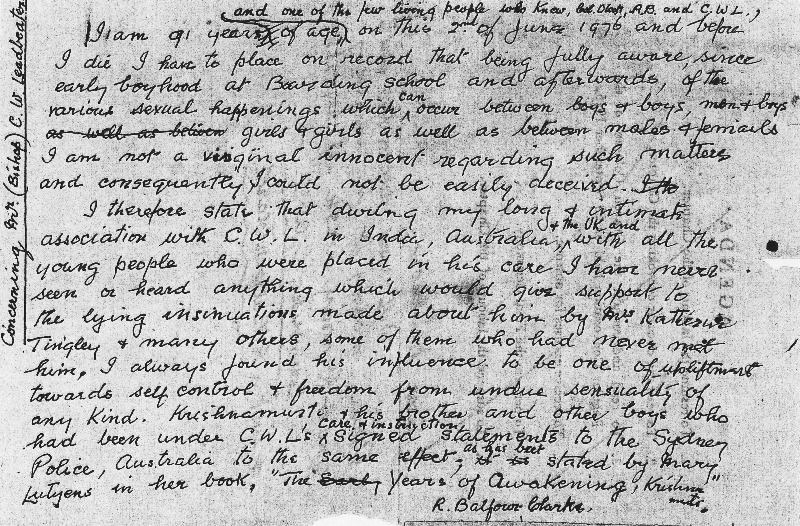 Concerning Mr. (Bishop) C. W. Leadbeater
and one of the few living people who knew, both A.B. and C.W.L.,
I am 91 years of age, on this 2nd of June 1976 and before
I die I have to place on record that being fully aware, since
early boyhood at Boarding School and afterwards, of the
various sexual happenings which can occur between boys & boys, men & boys
as well as between girls & girls as well as between males & femails
I am not a virginal innocent regarding such matters
and consequently, I could not be easily deceived. I the
I therefore state that during my long & intimate
association with C.W.L. in India, Australia & the UK, and with all the
young people who were placed in his care I have never
seen or heard anything which would give support to
the lying insinuations made about him by Mrs Katherine
Tingley & many others, some of them who had never met
him. I always found his influence to be one of upliftment
towards self control & freedom from undue sensuality of
any kind. Krishnamurti & his brother and other boys who
had been under C.W.L's care & instruction signed statements to the Sydney
Police, Australia to the same effect, as has been stated by Mary
Lutyens in her book, "The Early Years of Awakening, Krishna
murti."
R. Balfour Clarke.
AGENDA